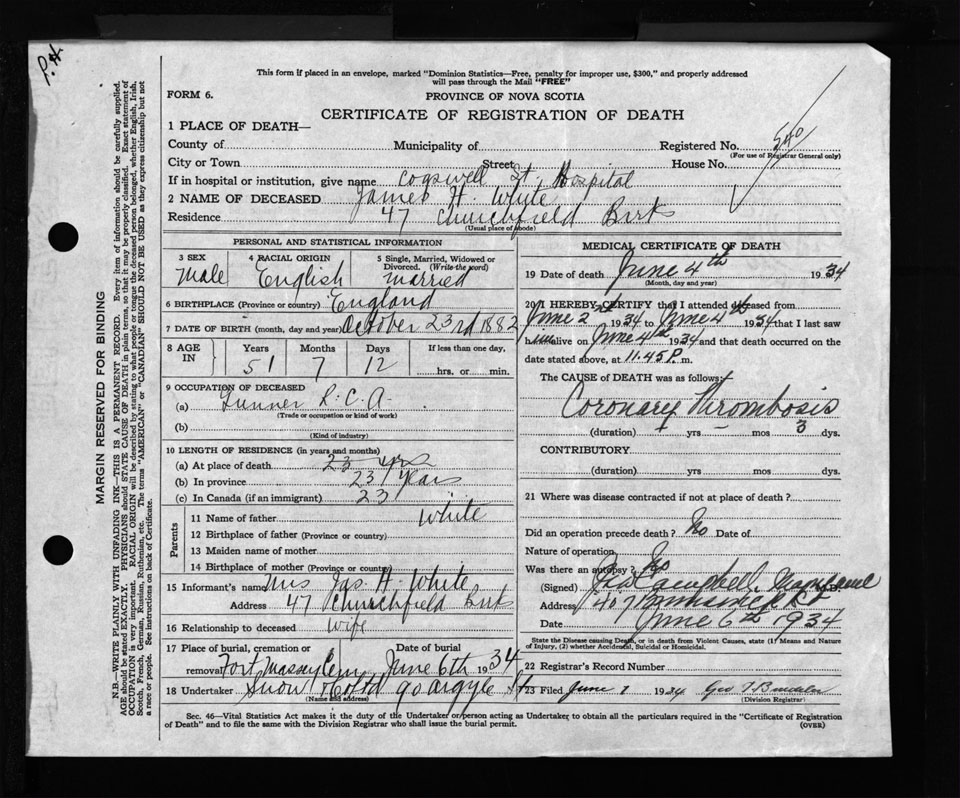 P.H.
This form if placed in an envelope, marked "Dominion Statistics—Free, penalty for improper use, $300," and properly addressed
will pass through the Mail "FREE"
FORM 6.
PROVINCE OF NOVA SCOTIA
CERTIFICATE OF REGISTRATION OF DEATH
1 PLACE OF DEATH—
County of Municipality of Registered No. 540
(For use of Registrar General only)
City or Town Street House No.
If in hospital or institution, give name Cogswell St. Hospital
2 NAME OF DECEASED James H. White
Residence 47 Churchfield Brks
(Usual place of abode)
PERSONAL AND STATISTICAL INFORMATION
3 SEX Male
4 RACIAL ORIGIN English
5 Single, Married, Widowed or Divorced. (Write the word) Married
6 BIRTHPLACE (Province or country) England
7 DATE OF BIRTH (month, day and year) October 23rd 1882
8 AGE IN Years Months Days If less than one day,
51 7 12 hrs. or min.
9 OCCUPATION OF DECEASED
(a) Gunner R.C.A.
(Trade or occupation or kind of work)
(b)
(Kind of industry)
10 LENGTH OF RESIDENCE (in years and months)
(a) At place of death 23 yrs
(b) In province 23 years
(c) In Canada (if an immigrant) 23
Parents
11 Name of father White
12 Birthplace of father (Province or country)
13 Maiden name of mother
14 Birthplace of mother (Province or country)
15 Informant's name Mrs Jas. H. White
Address 47 Churchfield Brks
16 Relationship to deceased Wife
17 Place of burial, cremation or Date of burial
removal Fort Massey Cem June 6th 1934
18 Undertaker Snow & Co Ltd 90 Argyle St
(Name and address)
MEDICAL CERTIFICATE OF DEATH
19 Date of death June 4th 1934
(Month, day and year)
20 I HEREBY CERTIFY that I attended deceased from
June 2nd 1934 to June 4th 1934 that I last saw
him alive on June 4th 1934 and that death occurred on the
date stated above, at 11.45 P. m.
The CAUSE of DEATH was as follows:
Coronary Thrombosis
(duration) yrs — mos 3 dys.
CONTRIBUTORY
(duration) yrs mos dys.
21 Where was disease contracted if not at place of death?
Did an operation precede death? No Date of
Nature of operation
Was there an autopsy? No
(Signed) Campbell M.D.
Address 407
Date June 6th 1934
State the Disease causing Death, or in death from Violent Causes, state (1) Means and Nature
of Injury, (2) whether Accidental, Suicidal or Homicidal.
22 Registrar's Record Number
23 Filed June 1934 Geo
(Division Registrar)
Sec. 46—Vital Statistics Act makes it the duty of the Undertaker or person acting as Undertaker to obtain all the particulars required in the "Certificate of Registration
of Death" and to file the same with the Division Registrar who shall issue the burial permit.
(OVER)
MARGIN RESERVED FOR BINDING
N.B.—WRITE PLAINLY WITH UNFADING INK—THIS IS A PERMANENT RECORD. Every item of information should be carefully supplied.
AGE should be stated EXACTLY. PHYSICIANS should STATE CAUSE OF DEATH in plain terms, so that it may be properly classified. Exact statement of
OCCUPATION is very important. RACIAL ORIGIN will be described by stating to what people or tongue the deceased person belonged, whether English, Irish,
Scotch, French, German, Russian, Ruthenian, etc. The terms "AMERICAN" or "CANADIAN" SHOULD NOT BE USED as they express citizenship but not
a race or people. See instructions on back of Certificate.